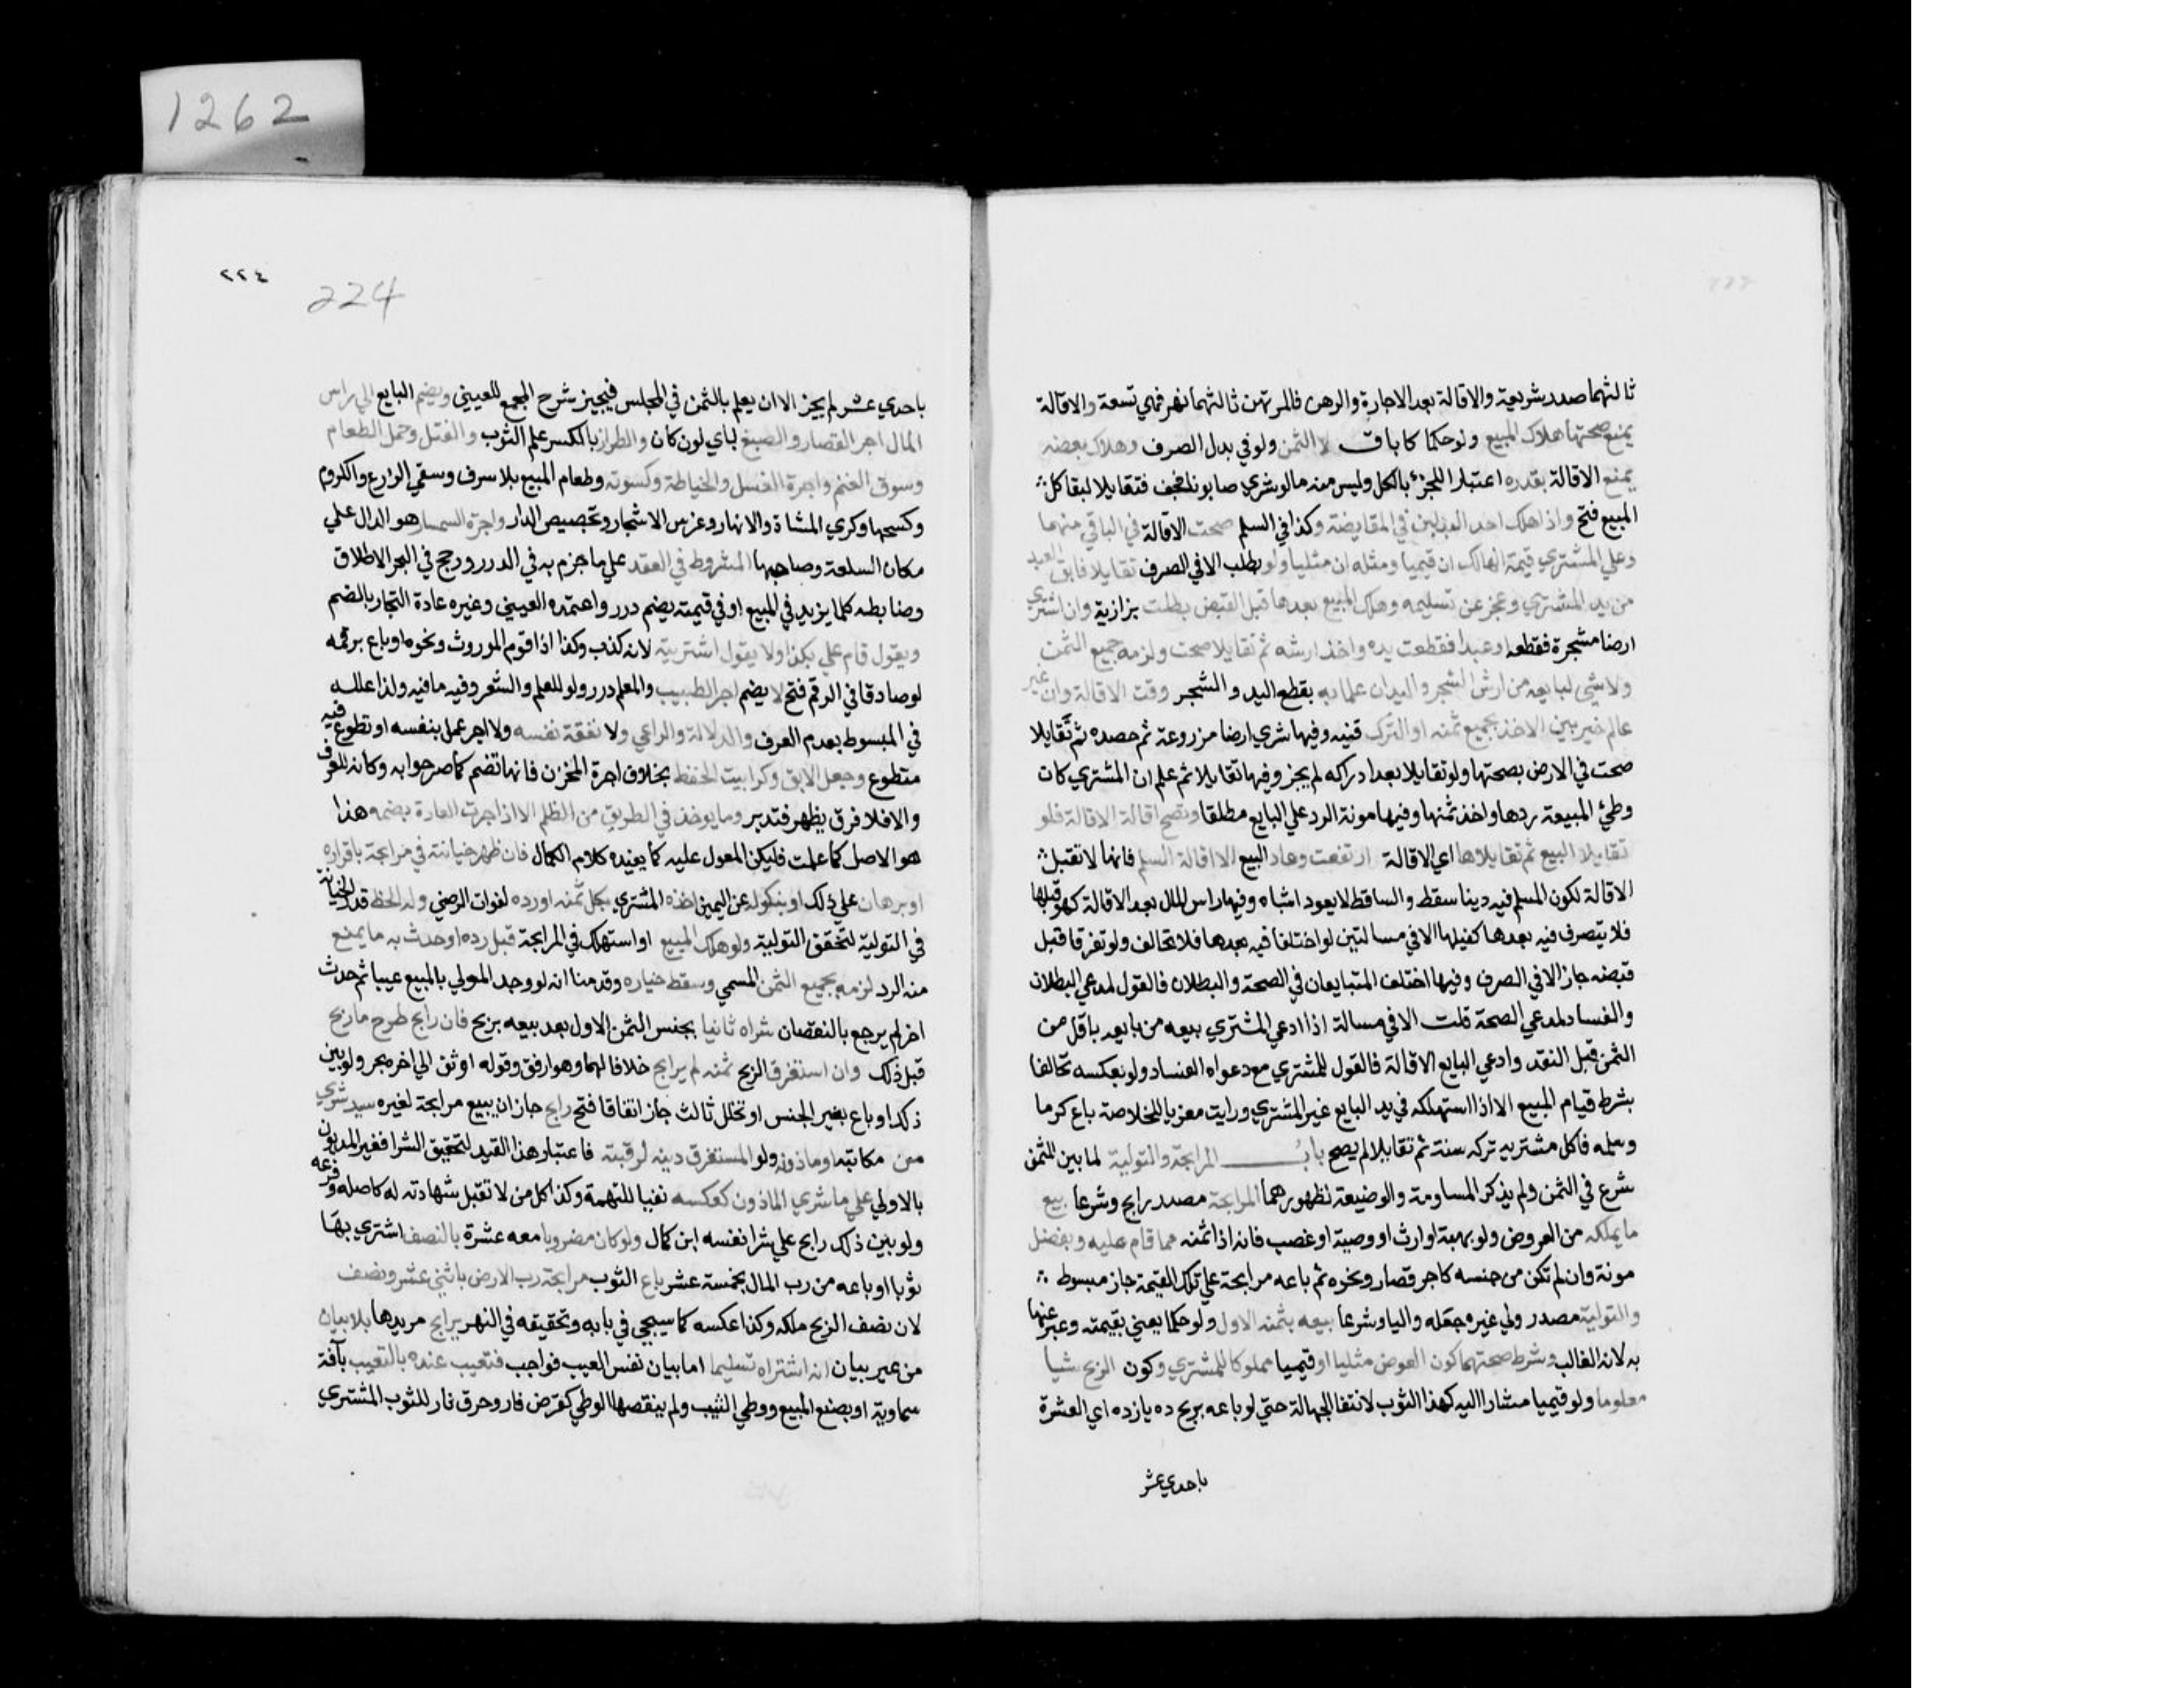 1262
ثالثهما صدر شريعة والاقالة بعد الاجارة والرهن فالمرتهن ثالثهما نهر فهي تسعة والاقالة
يمنع صحتها هلاك المبيع ولو حكما كاباق لا الثمن ولو في بدل الصرف وهلاك بعضه
يمنع الاقالة بقدره اعتبارا للجزء بالكل وليس منه مالو شري صابونا فجف فتقايلا لبقا كل
المبيع فتح واذا هلك احد البدلين في المقايضة وكذا في السلم صحت الاقالة في الباقي منهما
وعلي المشتري قيمة الهالك ان قيميا ومثله ان مثليا ولو بطلب الا في الصرف تقايلا فابق العبد
من يد المشتري وعجز عن تسليمه وهلك المبيع بعدها قبل القبض بطلت بزازية وان اشتري
ارضا مشجرة فقطعه او عبدا فقطعت يده واخذ ارشه ثم تقايلا صحت ولزمه جميع الثمن
ولا شي لبايعه من ارش الشجر واليدان علما به بقطع اليد والشجر وقت الاقالة وان غير
عالم خير بين الاخذ بجميع ثمنه او الترك قنيه وفيها شري ارضا مزروعة ثم حصده ثم تقايلا
صحت في الارض بصحتها ولو تقايلا بعد ادراكه لم يجز وفيها تقايلا ثم علم ان المشتري كان
وطئ المبيعة ردها واخذ ثمنها وفيها مونة الرد علي البايع مطلقا وتصح اقالة الاقالة فلو
تقايلا البيع ثم تقايلاها اي الاقالة ارتفعت وعاد البيع الا اقالة السلم فانها لا تقبل
الاقالة لكون المسلم فيه دينا سقط والساقط لا يعود اشباه وفيها راس المال بعد الاقالة كهو قبلها
فلا يتصرف فيه بعدها كقبلها الا في مسالتين لو اختلفا فيه بعدها فلا تحالف ولو تفرقا قبل
قبضه جاز الا في الصرف وفيها اختلف المتبايعان في الصحة والبطلان فالقول لمدعي البطلان
والفساد لمدعي الصحة قلت الا في مسالة اذا ادعي المشتري بيعه من بايعه باقل من
الثمن قبل النقد وادعي البايع الاقالة فالقول للمشتري مع دعواه الفساد ولو بعكسه تحالفا
بشرط قيام المبيع الا اذا استهلكه في يد البايع غير المشتري ورايت معزيا للخلاصة باع كرما
وسلمه فاكل مشتريه تركه سنة ثم تقايلا لم يصح باب المرابحة والتولية لما بين للثمن
شرع في الثمن ولم يذكر المساومة والوضيعة لظهورهما المرابحة مصدر رابح وشرعا بيع
ما يملكه من العروض ولو بهبة او ارث او وصية او غصب فانه اذا ثمنه مما قام عليه وبفضل
مونة وان لم تكن من جنسه كاجر قصار ونحوه ثم باعه مرابحة علي تلك القيمة جاز مبسوط
والتولية مصدر ولي غيره جعله واليا وشرعا بيعه بثمنه الاول ولو حكما يعني بقيمته وعبر عنها
به لانه الغالب وشرط صحتهما كون العوض مثليا او قيميا مملوكا للمشتري وكون الربح شيا
معلوما ولو قيميا مشارا اليه كهذا الثوب لانتفا الجهالة حتي لو باعه بربح ده يازده اي العشرة
باحدي عشر
٢٢٤
224
باحدي عشر لم يجز الا ان يعلم بالثمن في المجلس فيجيز شرح المجمع للعيني ويضم البايع الي راس
المال اجر القصار والصبغ باي لون كان والطراز بالكسر علم الثوب والفتل وحمل الطعام
وسوق الغنم واجرة الغسل والخياطة وكسوته وطعام المبيع بلا سرف وسقي الزرع والكروم
وكسحها وكري المشاة والانهار وغرس الاشجار وتجصيص الدار واجرة السمسار هو الدال علي
مكان السلعة وصاحبها المشروط في العقد علي ما جزم به في الدرر ورجح في البحر الاطلاق
وضابطه كلما يزيد في المبيع او في قيمته يضم درر واعتمده العيني وغيره عادة التجار بالضم
ويقول قام علي بكذا ولا يقول اشتريته لانه كذب وكذا اذا قوم الموروث ونحوه او باع برقمه
لو صادقا في الرقم فتح لا يضم اجر الطبيب والمعلم درر ولو للعلم والشعر وفيه ما فيه ولذا علله
في المبسوط بعدم العرف والدلالة والراعي ولا نفقة نفسه ولا اجر عمل بنفسه او تطوع فيه
متطوع وجعل الابق وكرا بيت الحفظ بخلاف اجرة المخزن فانها تضم كما صرحوا به وكانه للعرف
والا فلا فرق يظهر فتدبر وما يوخذ في الطريق من الظلم الا اذا جرت العادة بضمه هذا
هو الاصل كما علمت فليكن المعول عليه كما يفيده كلام الكمال فان ظهر خيانته في مرابحة باقراره
او برهان علي ذلك او بنكوله عن اليمين اخذه المشتري بكل ثمنه او رده لفوات الرضي وله الحظ قدر الخيانة
في التولية لتحقق التولية ولو هلك المبيع او استهلك في المرابحة قبل رده او حدث به ما يمنع
منه الرد لزمه بجميع الثمن المسمي وسقط خياره وقدمنا انه لو وجد المولي بالمبيع عيبا ثم حدث
اخر لم يرجع بالنقصان شراه ثانيا بجنس الثمن الاول بعد بيعه بربح فان رابح طرح ما ربح
قبل ذلك وان استغرق الربح ثمنه لم يرابح خلافا لهما وهو ارفق وقوله اوثق الي اخره بحر ولو بين
ذلك او باع بغير الجنس او تخلل ثالث جاز اتفاقا فتح رابح جاز ان يبيع مرابحة لغيره سيد شري
من مكاتبه او ماذونه ولو المستغرق دينه لرقبته فاعتبار هذا القيد لتحقيق الشرا فغير المديون
بالاولي علي ما شري الماذون كعكسه نفيا للتهمة وكذا كل من لا تقبل شهادته له كاصله وفرعه
ولو بين ذلك رابح علي شرا نفسه ابن كمال ولو كان مضربا معه عشرة بالنصف اشتري بها
ثوبا او باعه من رب المال بخمسة عشر باع الثوب مرابحة رب الارض باثني عشر ونصف
لان نصف الربح ملكه وكذا عكسه كما سيجي في بابه وتحقيقه في النهر يرابح مريدها بلا بيان
من غير بيان انه اشتراه تسليما اما بيان نفس العيب فواجب فتعيب عنده بالتعيب بآفة
سماوية او بصنع المبيع ووطي الثيب ولم ينقصها الوطي كقرض فار وحرق نار للثوب المشتري